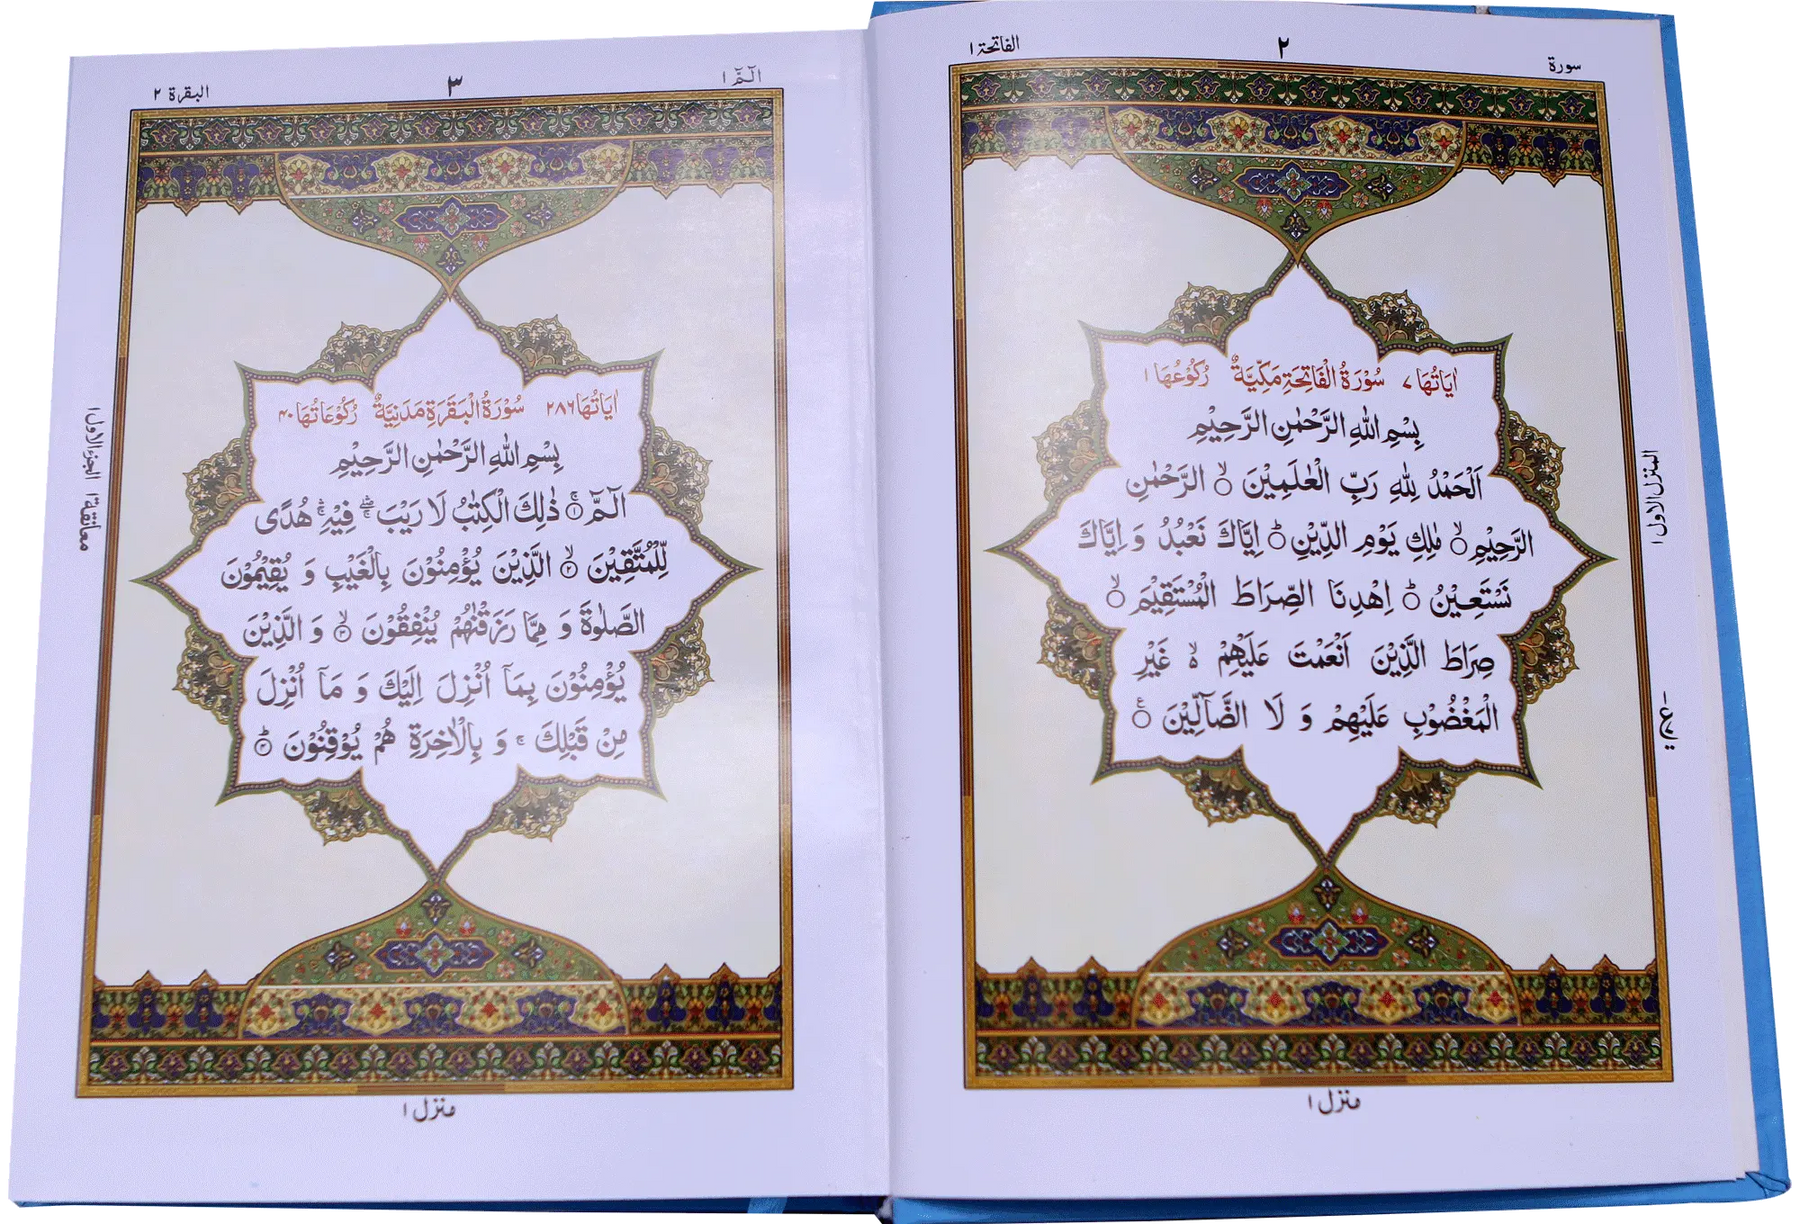 سورة
٢
الفاتحة ١
اٰيَاتُهَا ٧ سُوْرَةُ الْفَاتِحَةِ مَكِّيَّةٌ رُكُوْعُهَا ١
بِسْمِ اللّٰهِ الرَّحْمٰنِ الرَّحِيْمِ
اَلْحَمْدُ لِلّٰهِ رَبِّ الْعٰلَمِيْنَ ۙ الرَّحْمٰنِ
الرَّحِيْمِ ۙ مٰلِكِ يَوْمِ الدِّيْنِ ؕ اِيَّاكَ نَعْبُدُ وَ اِيَّاكَ
نَسْتَعِيْنُ ؕ اِهْدِنَا الصِّرَاطَ الْمُسْتَقِيْمَ ۙ
صِرَاطَ الَّذِيْنَ اَنْعَمْتَ عَلَيْهِمْ ۙ غَيْرِ
الْمَغْضُوْبِ عَلَيْهِمْ وَ لَا الضَّآلِّيْنَ
المنزل الاول ١
منزل ١
الٓمّٓ ١
٣
البقرة ٢
اٰيَاتُهَا ٢٨٦ سُوْرَةُ الْبَقَرَةِ مَدَنِيَّةٌ رُكُوْعَاتُهَا ٤٠
بِسْمِ اللّٰهِ الرَّحْمٰنِ الرَّحِيْمِ
الٓمّٓ ۚ ١ ذٰلِكَ الْكِتٰبُ لَا رَيْبَ ۛ فِيْهِ ۛ هُدًى
لِّلْمُتَّقِيْنَ ۙ ٢ الَّذِيْنَ يُؤْمِنُوْنَ بِالْغَيْبِ وَ يُقِيْمُوْنَ
الصَّلٰوةَ وَ مِمَّا رَزَقْنٰهُمْ يُنْفِقُوْنَ ۙ ٣ وَ الَّذِيْنَ
يُؤْمِنُوْنَ بِمَاۤ اُنْزِلَ اِلَيْكَ وَ مَاۤ اُنْزِلَ
مِنْ قَبْلِكَ ۚ وَ بِالْاٰخِرَةِ هُمْ يُوْقِنُوْنَ ؕ ٤
معانقة ١ الجزء الاول ١
منزل ١